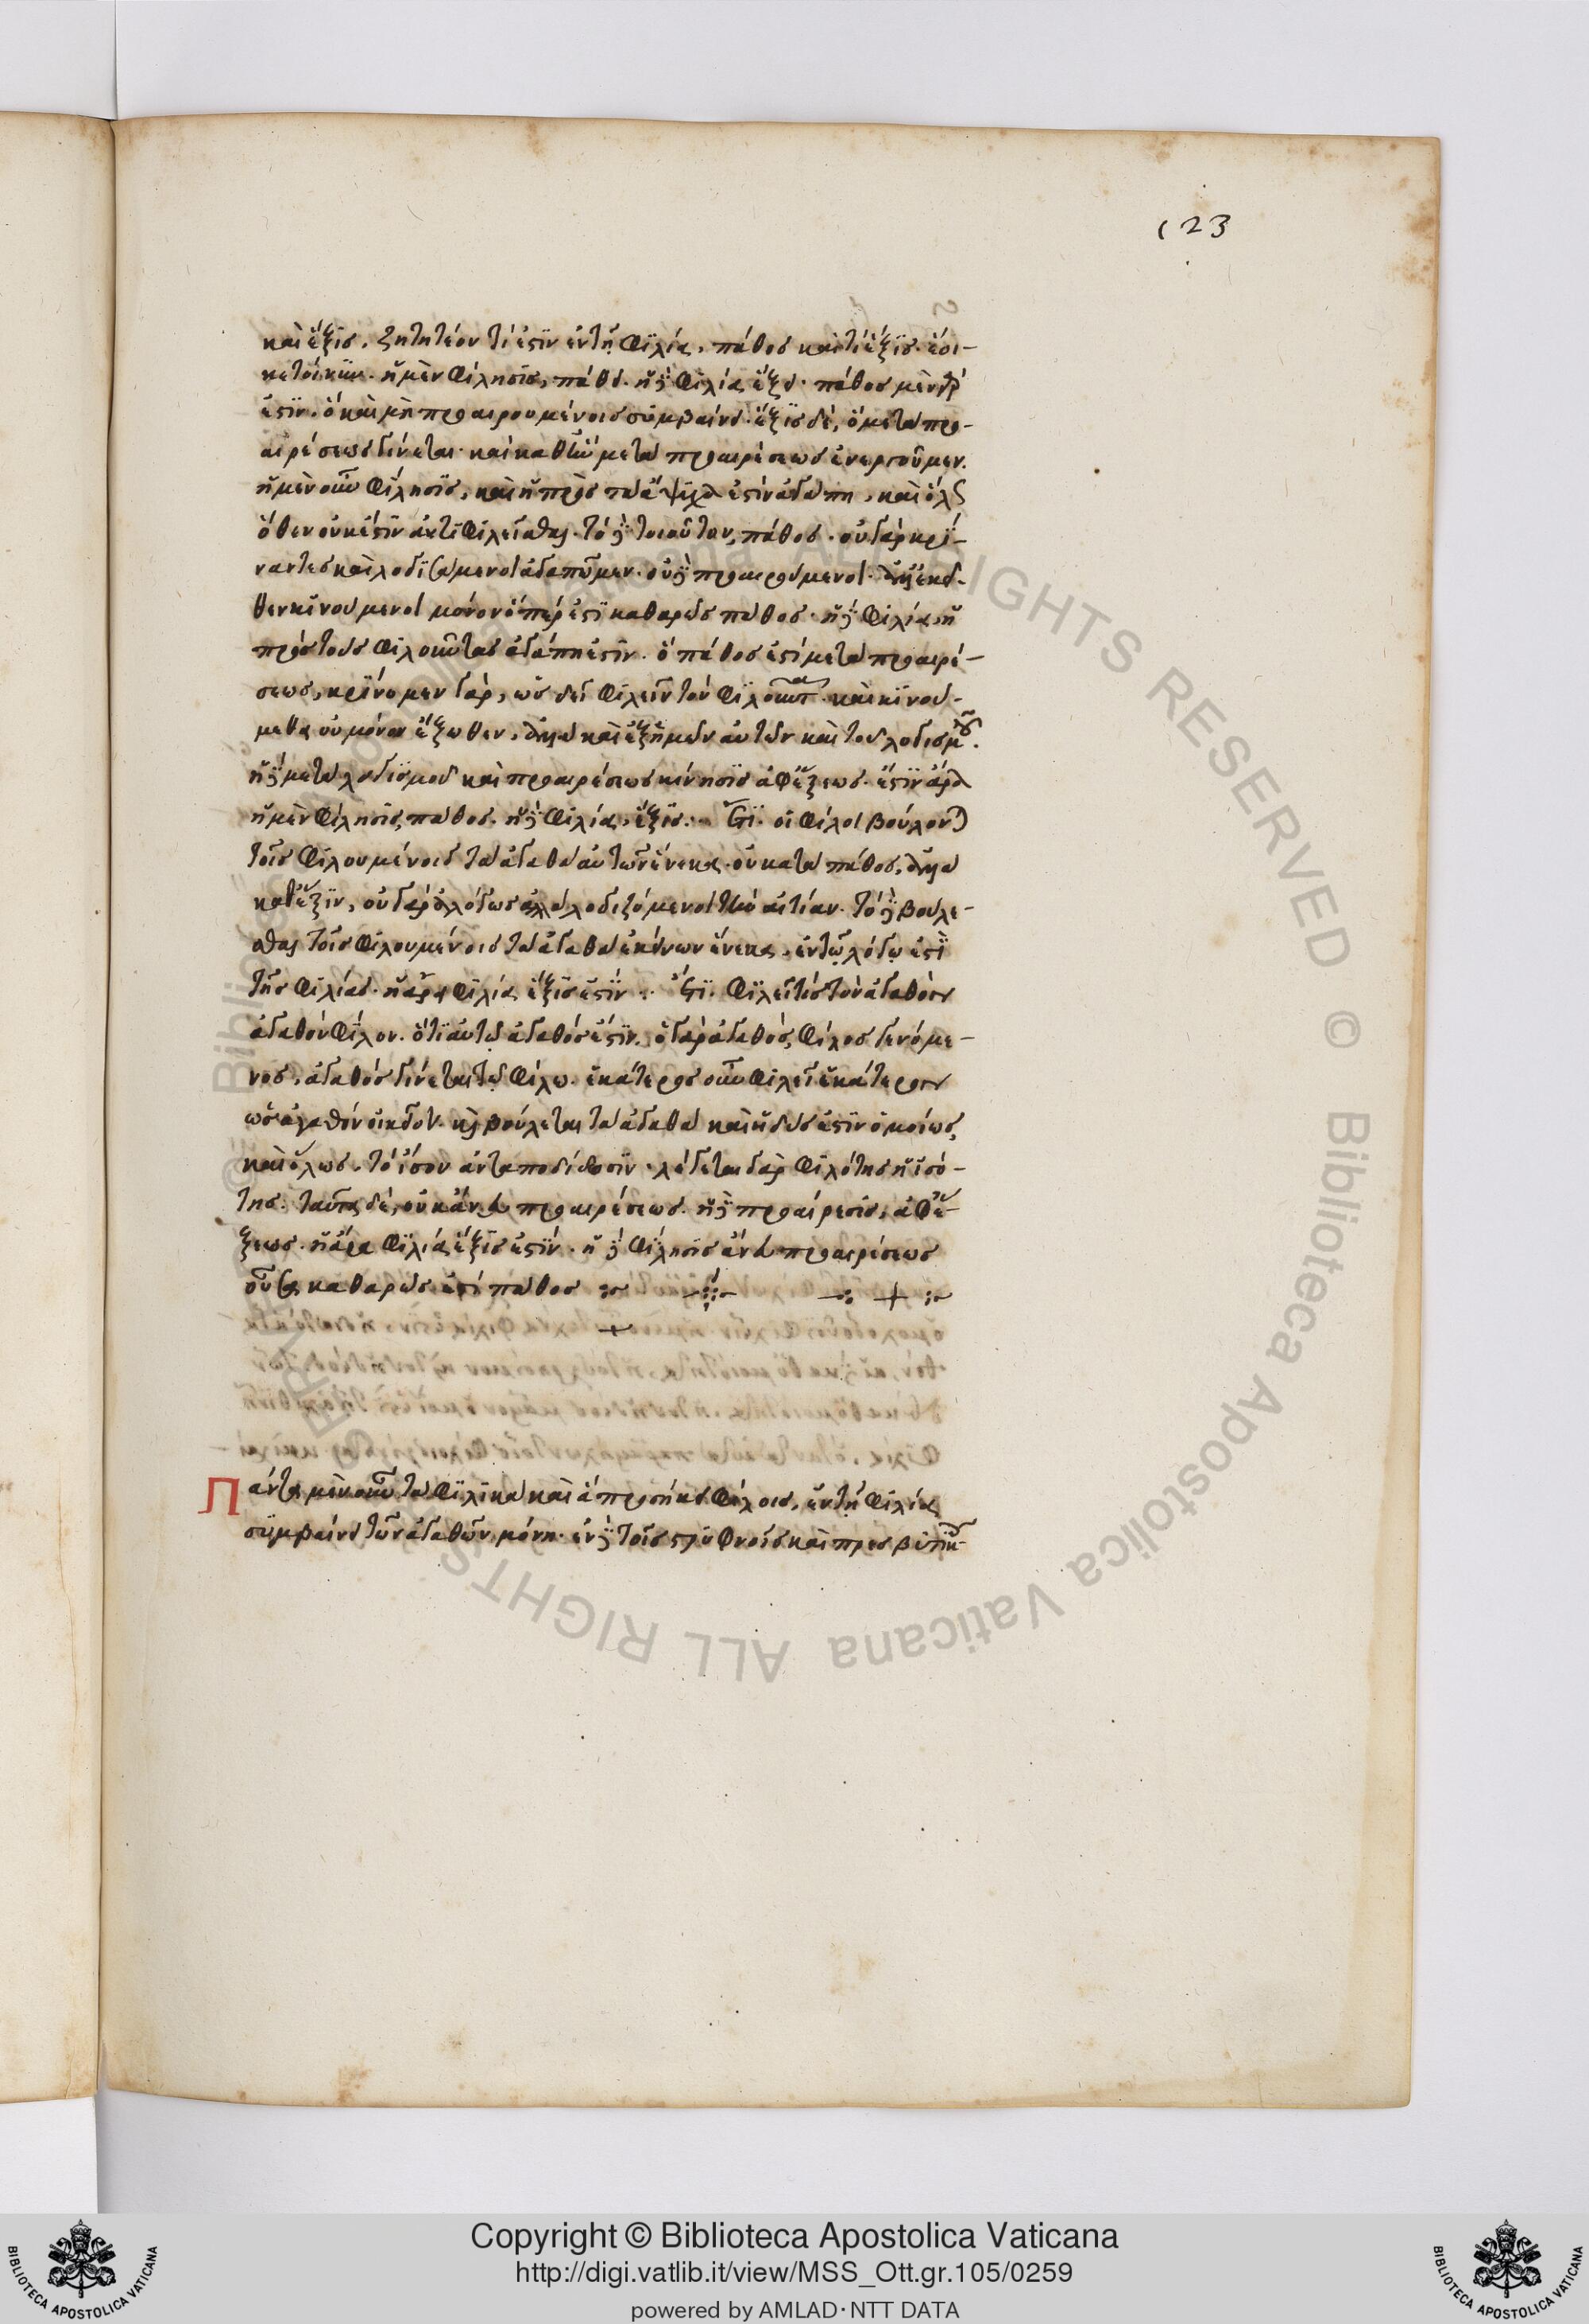 123
καὶ ἕξις. ζητητέον τί ἐστιν ἐν τῇ φιλίᾳ πάθος καὶ τί ἕξις. ἔοι-
κε τοίνυν ἡ μὲν φίλησις, πάθει. ἡ δὲ φιλία ἕξει. πάθος μὲν γάρ
ἐστιν, ὃ καὶ μὴ προαιρουμένοις συμβαίνει. ἕξις δὲ, ὃ μετὰ προ-
αιρέσεως γίνεται. καὶ καθ' ἣν μετὰ προαιρέσεως ἐνεργοῦμεν.
ἡ μὲν οὖν φίλησις, καὶ ἡ πρὸς τὰ ἄψυχά ἐστιν ἀγάπη, καὶ ὅλως
ὅθεν οὐκ ἔστιν ἀντιφιλεῖσθαι. τὸ δὲ τοιοῦτον, πάθος. οὐ γὰρ κρί-
ναντες καὶ λογισάμενοι ἀγαπῶμεν. οὐδὲ προαιρούμενοι. ἀλλ' ἐκεῖ-
θεν κινούμενοι μόνον ὅπερ ἐστὶ καθαρῶς πάθος. ἡ δὲ φιλία, ἡ
πρὸς τοὺς φιλοῦντας ἀγάπη ἐστίν. ὃ πάθος ἐστὶ μετὰ προαιρέ-
σεως, κρίνομεν γάρ, ὡς δεῖ φιλεῖν τὸν φιλοῦντα. καὶ κινού-
μεθα οὐ μόνον ἔξωθεν, ἀλλὰ καὶ ἐξ ἡμῶν αὐτῶν καὶ τοῦ λογισμοῦ.
ἡ δὲ μετὰ λογισμοῦ καὶ προαιρέσεως κίνησις ἀφ' ἕξεως. ἔστιν ἄρα
ἡ μὲν φίλησις πάθος. ἡ δὲ φιλία, ἕξις. ἔτι. οἱ φίλοι βούλονται
τοῖς φιλουμένοις τὰ ἀγαθὰ αὐτῶν ἕνεκα. οὐ κατὰ πάθος, ἀλλὰ
καθ' ἕξιν, οὐ γὰρ ἀλόγως ἀλλὰ λογιζόμενοι τὴν αἰτίαν. τὸ δὲ βούλε-
σθαι τοῖς φιλουμένοις τὰ ἀγαθὰ ἐκείνων ἕνεκα, ἐν τῷ λόγῳ ἐστὶ
τῆς φιλίας. ἡ ἄρα φιλία ἕξις ἐστίν. ἔτι. φιλεῖ τις τὸν ἀγαθὸν
ἀγαθὸν φίλον. ὅτι αὐτῷ ἀγαθός ἐστιν. ὁ γὰρ ἀγαθός, φίλος γενόμε-
νος, ἀγαθὸς γίνεται τῷ φίλῳ. ἑκάτερος οὖν φιλεῖ ἑκάτερον
ὡς ἀγαθὸν οἰκεῖον. καὶ βούλεται τὰ ἀγαθὰ καὶ ἡδύς ἐστιν ὁμοίως,
καὶ ὅλως, τὸ ἴσον ἀνταποδίδωσιν. λέγεται γὰρ φιλότης ἡ ἰσό-
της. ταῦτα δὲ, οὐκ ἄνευ προαιρέσεως. ἡ δὲ προαίρεσις, ἀφ' ἕ-
ξεως. ἡ ἄρα φιλία ἕξις ἐστίν. ἡ δὲ φίλησις ἄνευ προαιρέσεως
οὖσα καθαρῶς ἐστὶ πάθος
Πάντα μὲν οὖν τὰ φιλικὰ καὶ ἃ προσήκει φίλοις, ἐν τῇ φιλίᾳ
συμβαίνει τῶν ἀγαθῶν μόνῃ. ἐν δὲ τοῖς στρυφνοῖς καὶ πρεσβυτικ-
Copyright © Biblioteca Apostolica Vaticana
http://digi.vatlib.it/view/MSS_Ott.gr.105/0259
powered by AMLAD·NTT DATA
BIBLIOTECA APOSTOLICA VATICANA
BIBLIOTECA APOSTOLICA VATICANA
© Biblioteca Apostolica Vaticana ALL RIGHTS RESERVED